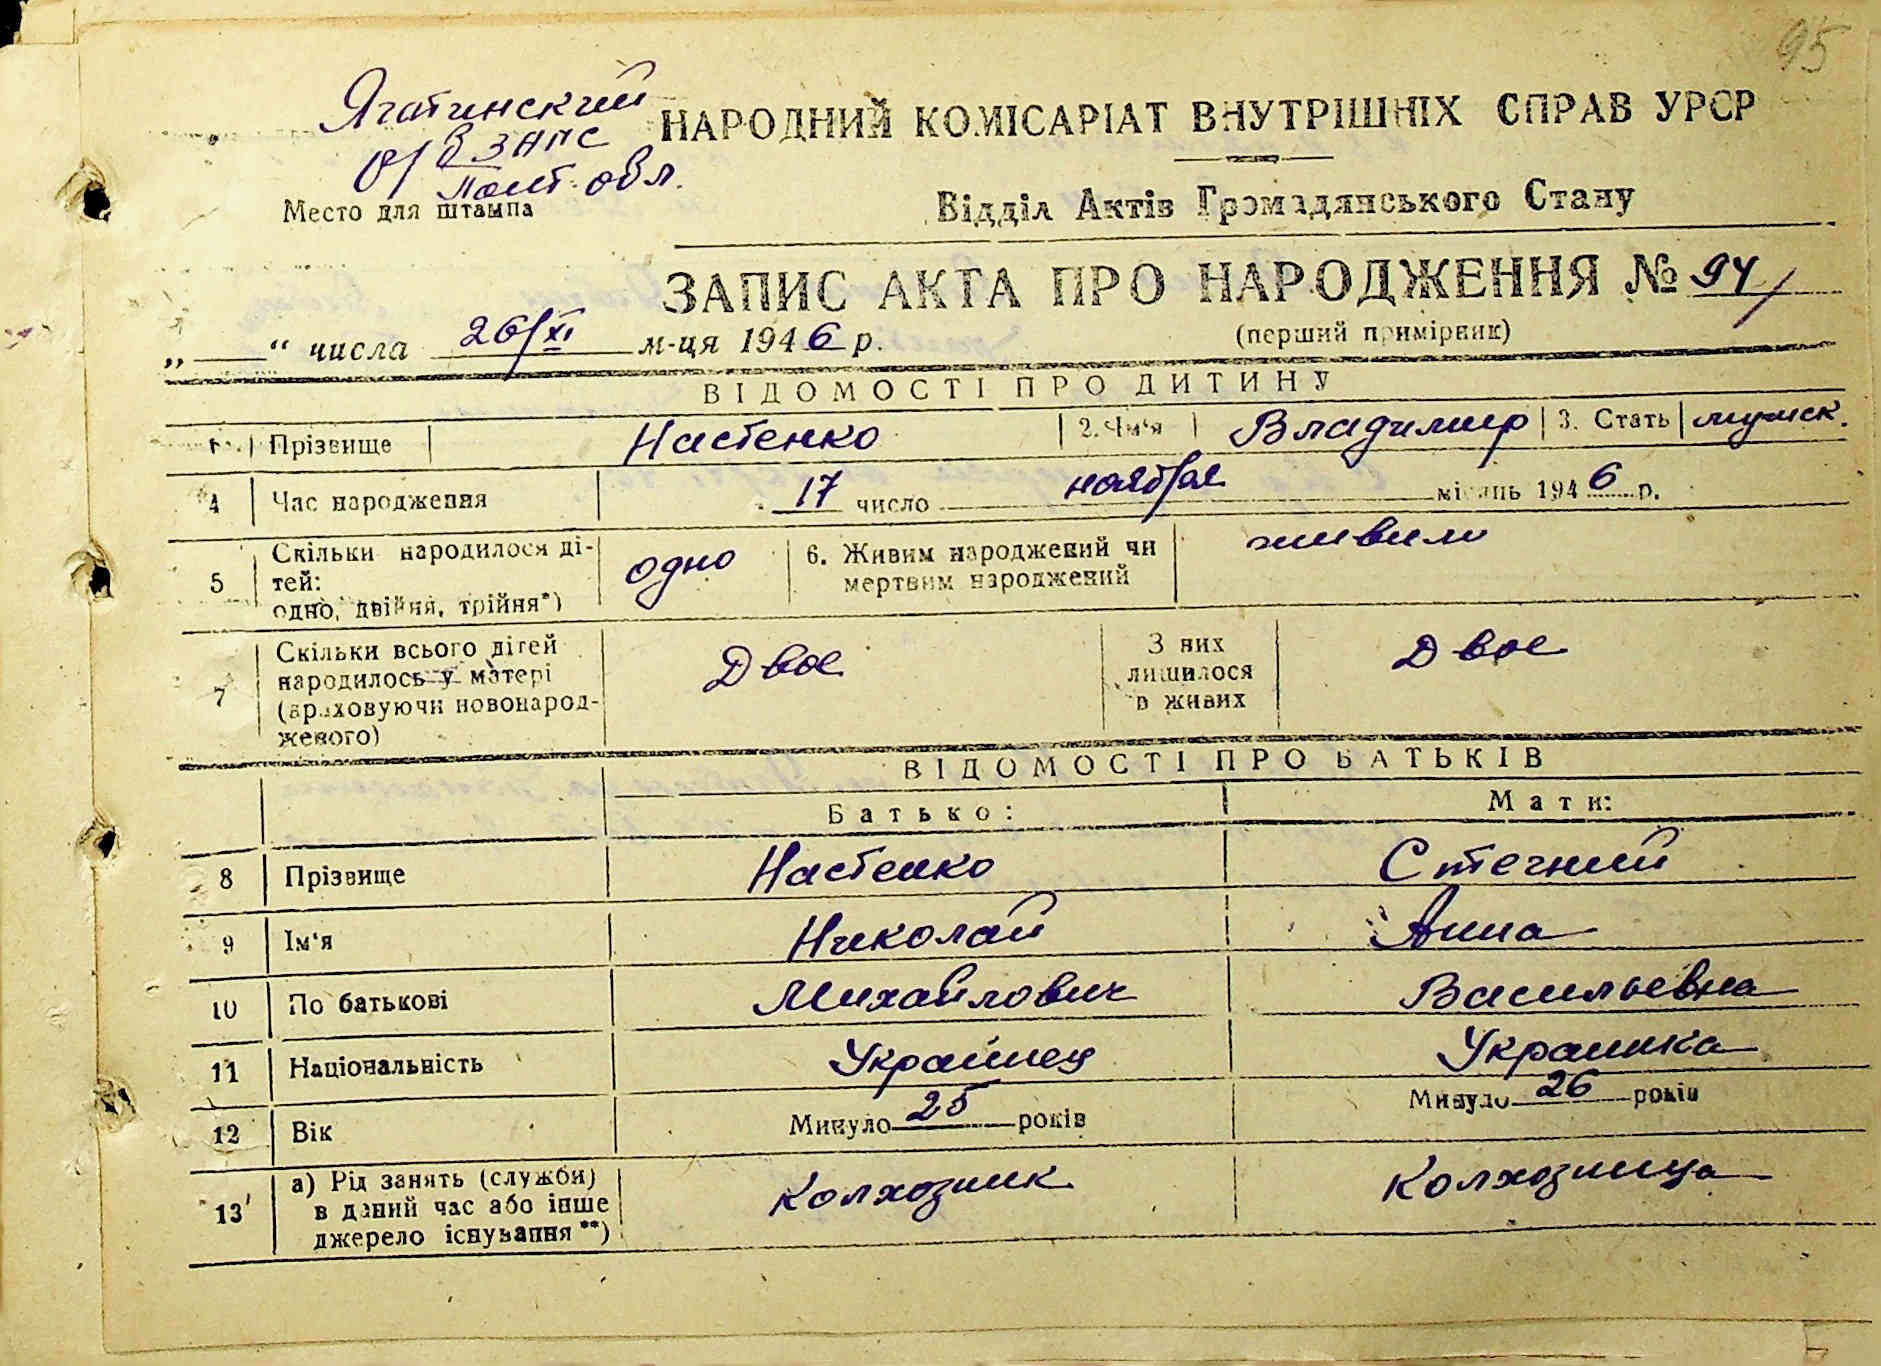 95
Яготинский
р/б ЗАГС
Полт. обл.
Место для штампа
НАРОДНИЙ КОМІСАРІАТ ВНУТРІШНІХ СПРАВ УРСР
Відділ Актів Громадянського Стану
ЗАПИС АКТА ПРО НАРОДЖЕННЯ № 94
(перший примірник)
„ “ числа 26/XI м-ця 1946 р.
ВІДОМОСТІ ПРО ДИТИНУ
1 Прізвище Настенко 2. Ім‘я Владимир 3. Стать мужск.
4 Час народження 17 число ноября місяць 1946 р.
5 Скільки народилося ді-
тей:
одно, двійня, трійня*) одно 6. Живим народжений чи
мертвим народжений живым
7 Скільки всього дітей
народилось у матері
(враховуючи новонарод-
женого) Двое З них
лишилося
в живих Двое
ВІДОМОСТІ ПРО БАТЬКІВ
Батько: Мати:
8 Прізвище Настенко Стечний
9 Ім‘я Николай Анна
10 По батькові Михайлович Васильевна
11 Національність Украинец Украинка
12 Вік Минуло 25 років Минуло 26 років
13 а) Рід занять (служби)
в даний час або інше
джерело існування**) Колхозник Колхозница